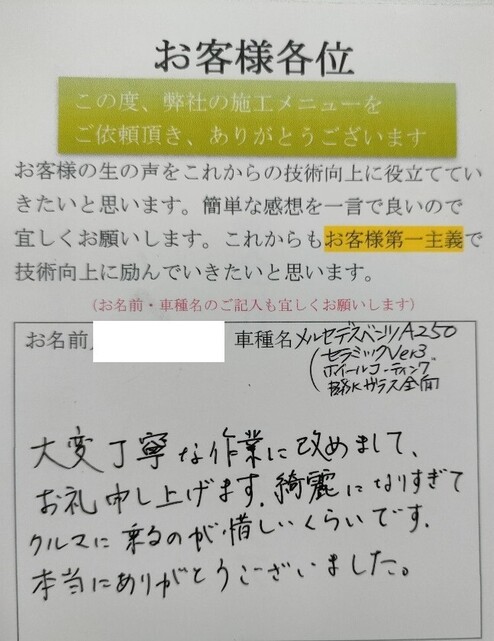 お客様各位
この度、弊社の施工メニューを
ご依頼頂き、ありがとうございます
お客様の生の声をこれからの技術向上に役立ててい
きたいと思います。簡単な感想を一言で良いので
宜しくお願いします。これからもお客様第一主義で
技術向上に励んでいきたいと思います。
(お名前・車種名のご記入も宜しくお願いします)
お名前 車種名 メルセデスベンツA250
セラミックVer3
ホイールコーティング
撥水ガラス全面
大変丁寧な作業に改めまして、
お礼申し上げます。綺麗になりすぎて
クルマに乗るのが惜しいくらいです。
本当にありがとうございました。